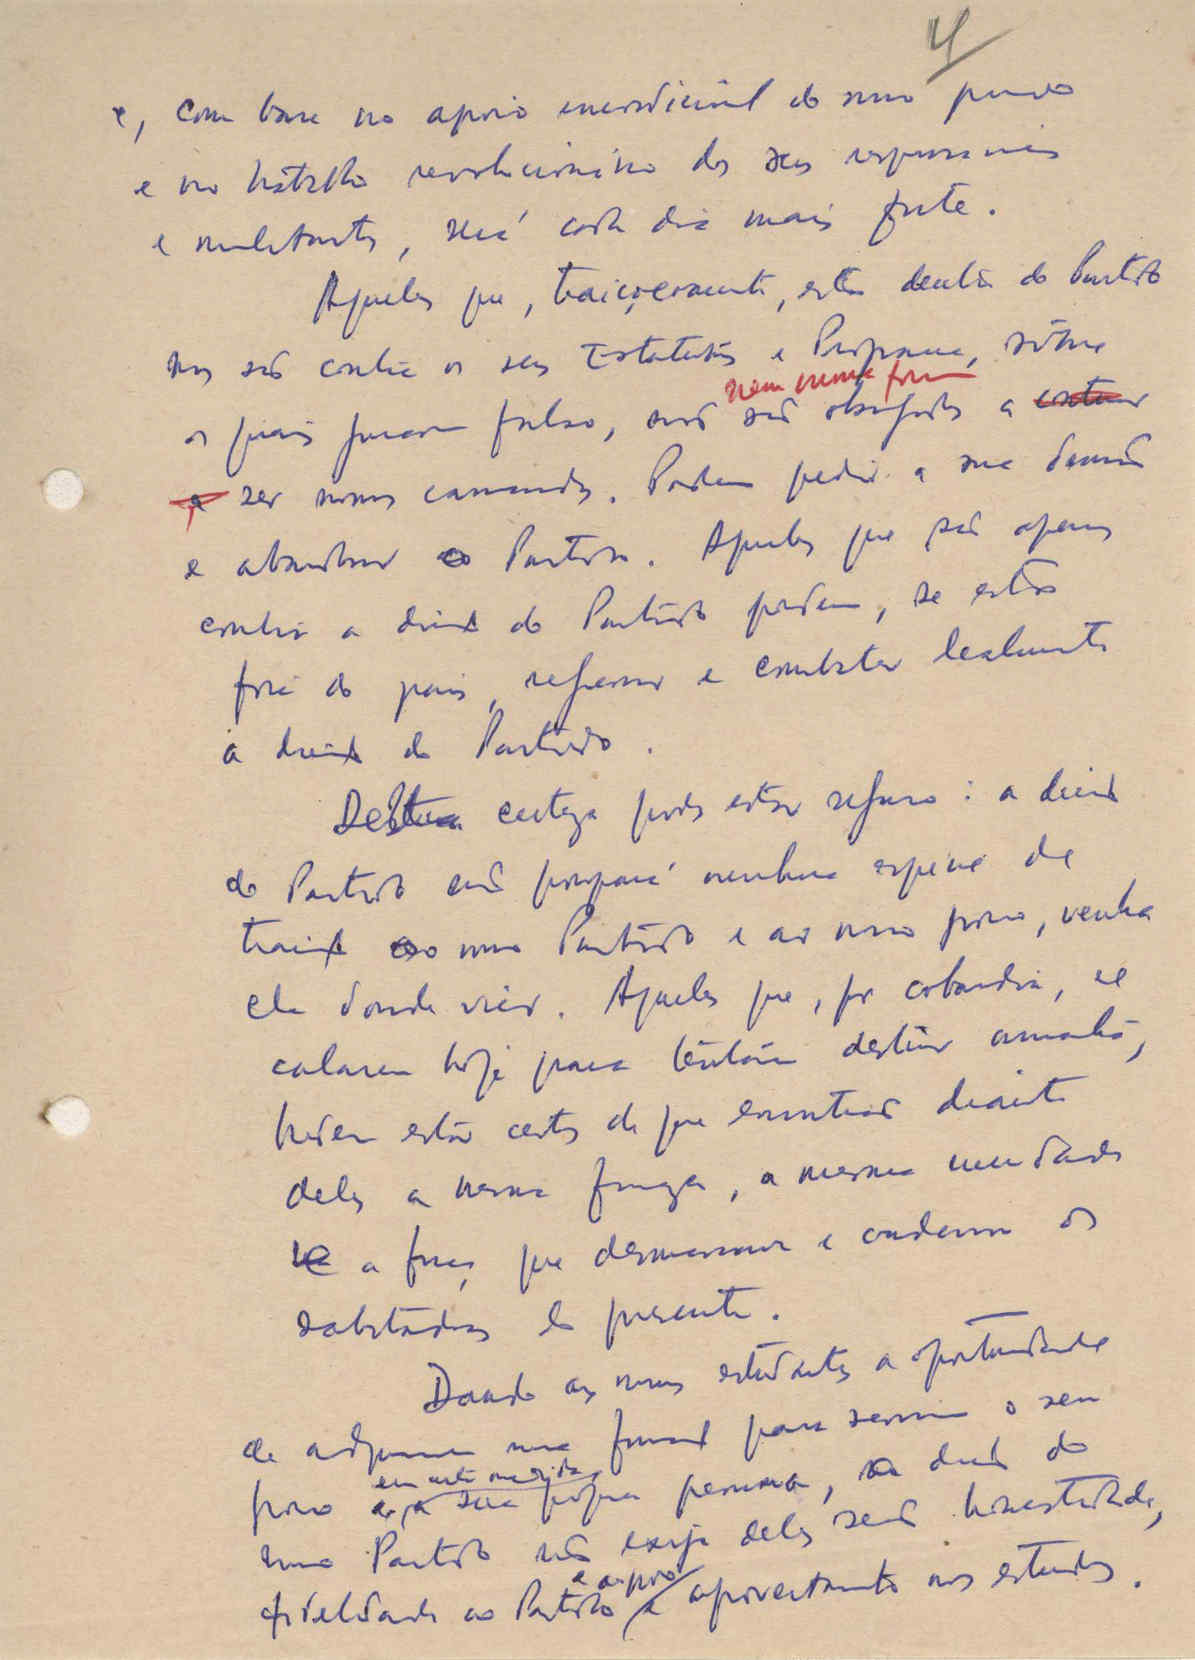 4
e, com base no apoio incondicional do nosso povo
e no trabalho revolucionário dos seus responsáveis
e militantes, será cada dia mais forte.
Aqueles que, traiçoeiramente, estão dentro do Partido
mas são contra os seus Estatutos e Programa, sobre
nem nunca foram
os quais juraram falso, não são obrigados a continuar
a ser nossos camaradas. Podem pedir a sua demissão
e abandonar o Partido. Aqueles que são apenas
contra a direcção do Partido podem, se estão
fora do país, regressar e combater lealmente
a direcção do Partido.
Desta certeza podes estar seguro: a direcção
do Partido não poupará nenhuma espécie de
traição ao nosso Partido e ao nosso povo, venha
ela donde vier. Aqueles que, por cobardia, se
calarem hoje para tentarem destruir amanhã,
podem estar certos de que encontrarão diante
deles a mesma firmeza, a mesma
a força que desmascara e condena os
sabotadores do presente.
Dando aos nossos estudantes a oportunidade
de adquirirem uma formação para servirem o seu
em certa medida
povo e, a sua própria pessoa, a direcção do
nosso Partido não exige deles senão honestidade,
e ao povo
fidelidade ao Partido e aproveitamento nos estudos.